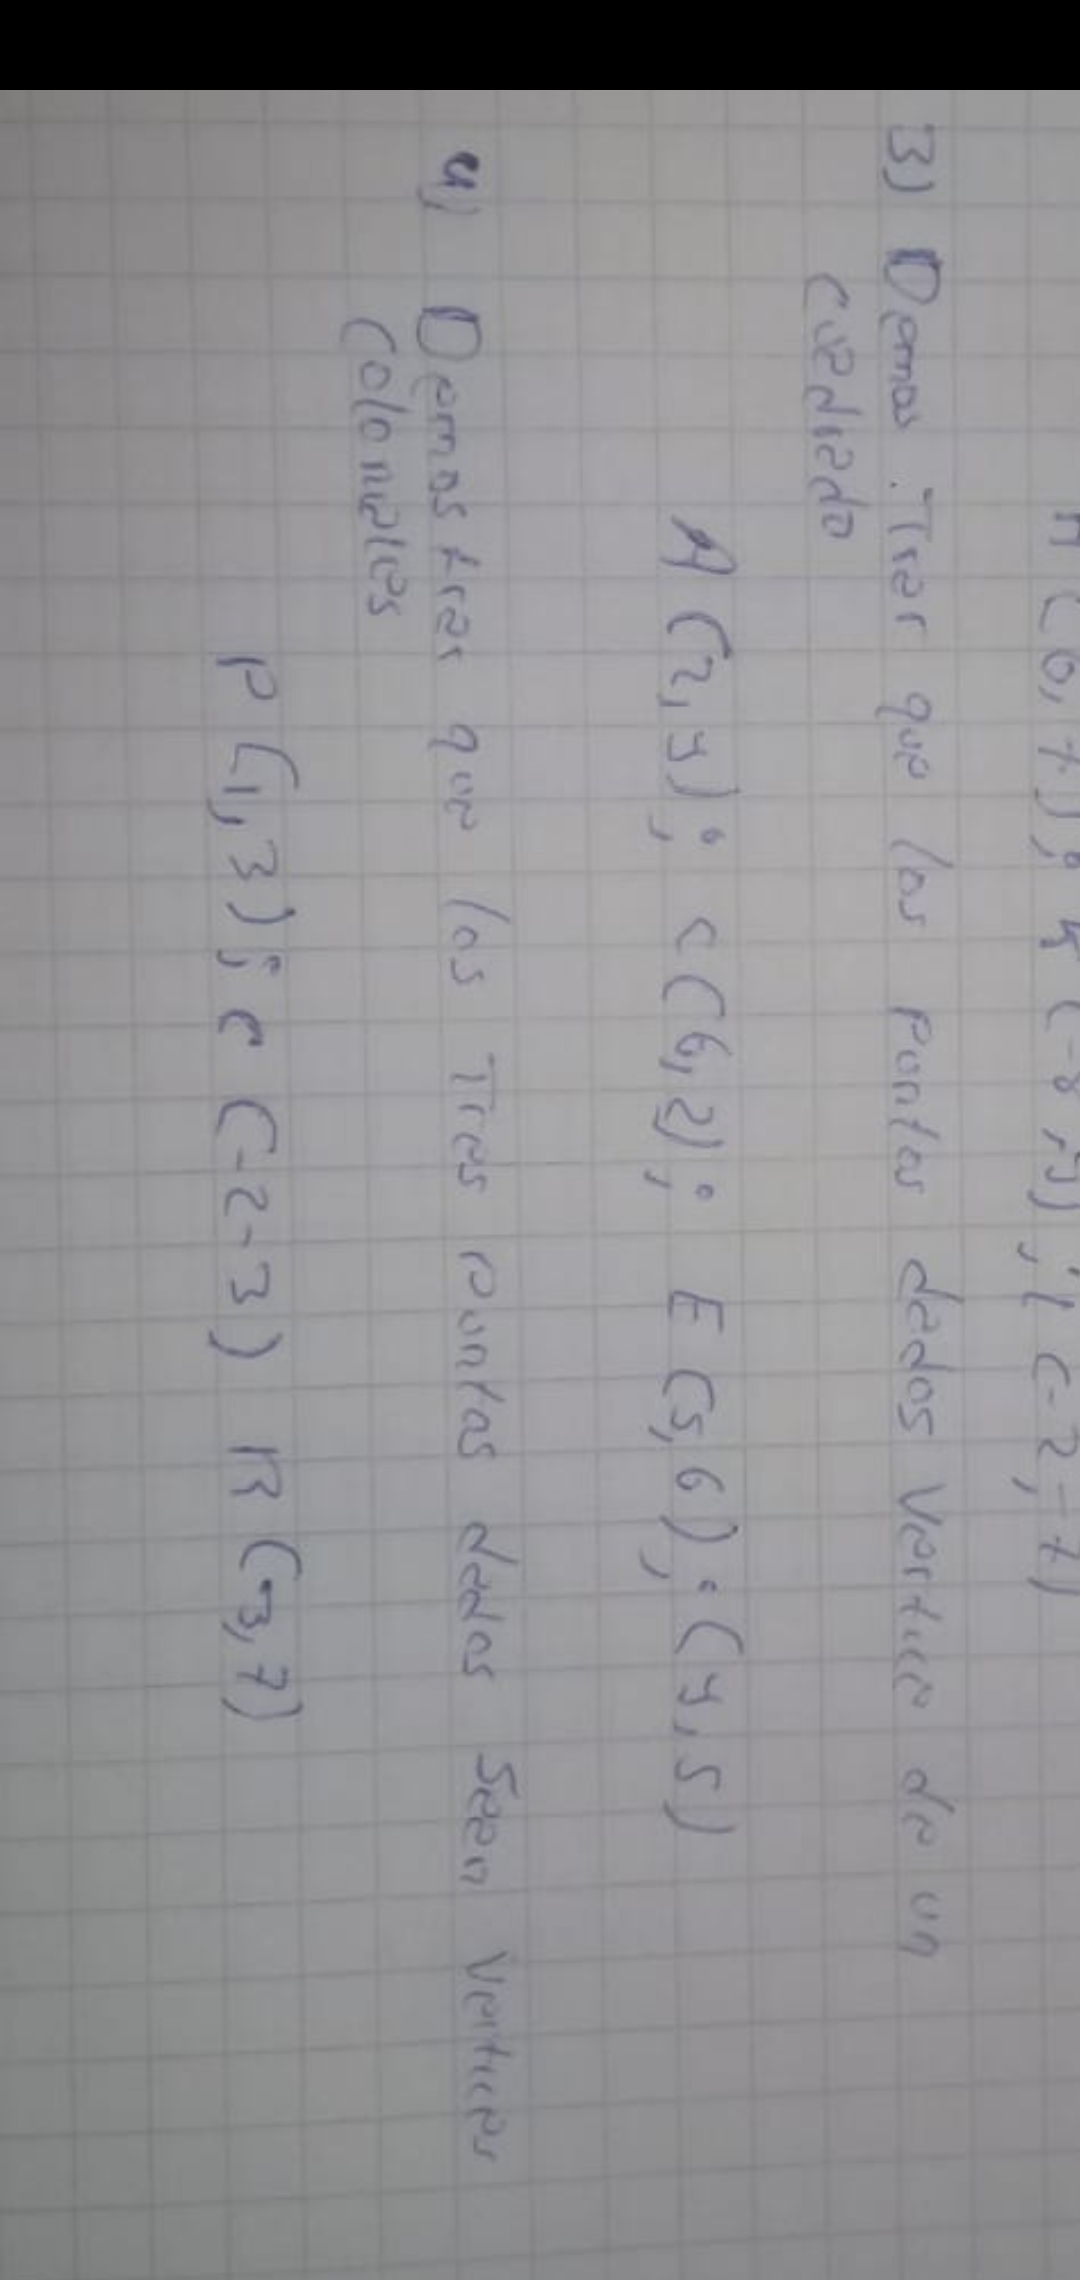 3) Demos Trar que los puntos dados vertice de un
cuadrado
A (2,4); C (6,2); E (5,6); (4,5)
4) Demostrar que los Tres puntos dados Sean vertices
Colonialies
P (1,3); C (-2-3) R (3,7)